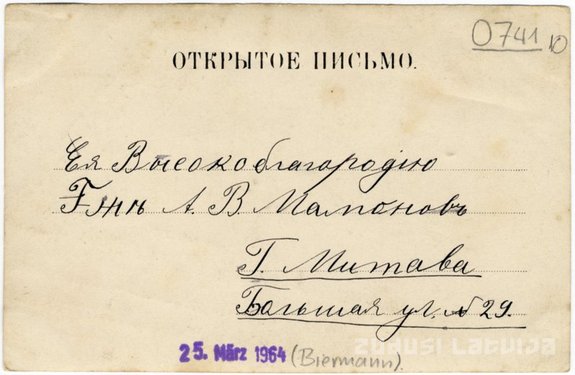 0741
10
ОТКРЫТОЕ ПИСЬМО.
Ея Высокоблагородію
Гжѣ А. В. Мамоновъ
Г. Митава
Большая ул. № 29.
25. März 1964 (Biermann).
ZUDUSI LATVIJA